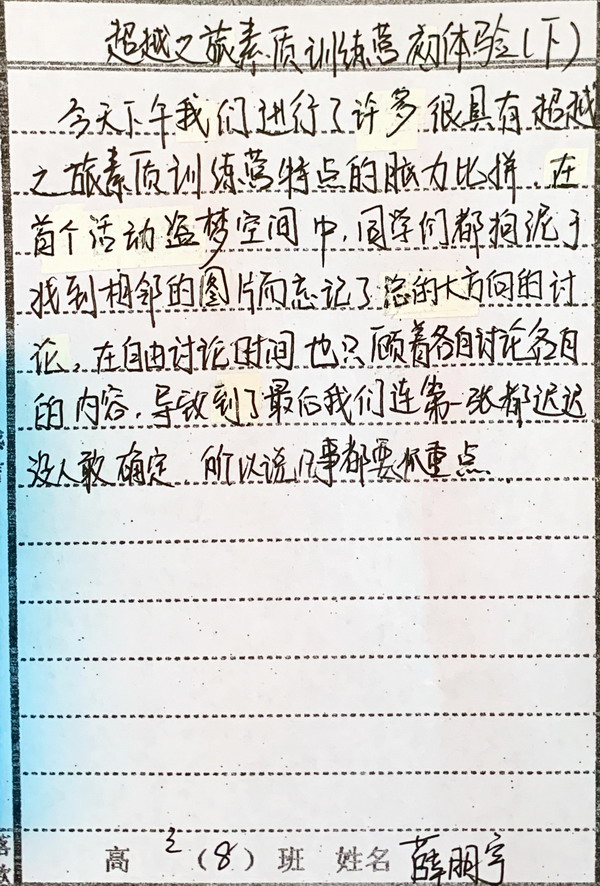 超越之旅素质训练营初体验(下)
今天下午我们进行了许多很具有超越
之旅素质训练营特点的脑力比拼、在
首个活动盗梦空间中,同学们都拘泥于
找到相邻的图片而忘记了总的大方向的讨
论。在自由讨论时间也只顾着各自讨论各自
的内容,导致到了最后我们连第一张都迟迟
没人敢确定 所以说凡事都要抓重点
高二(8)班 姓名 薛朋宇